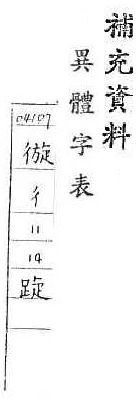 補充資料
異體字表
04107
彳
11
14